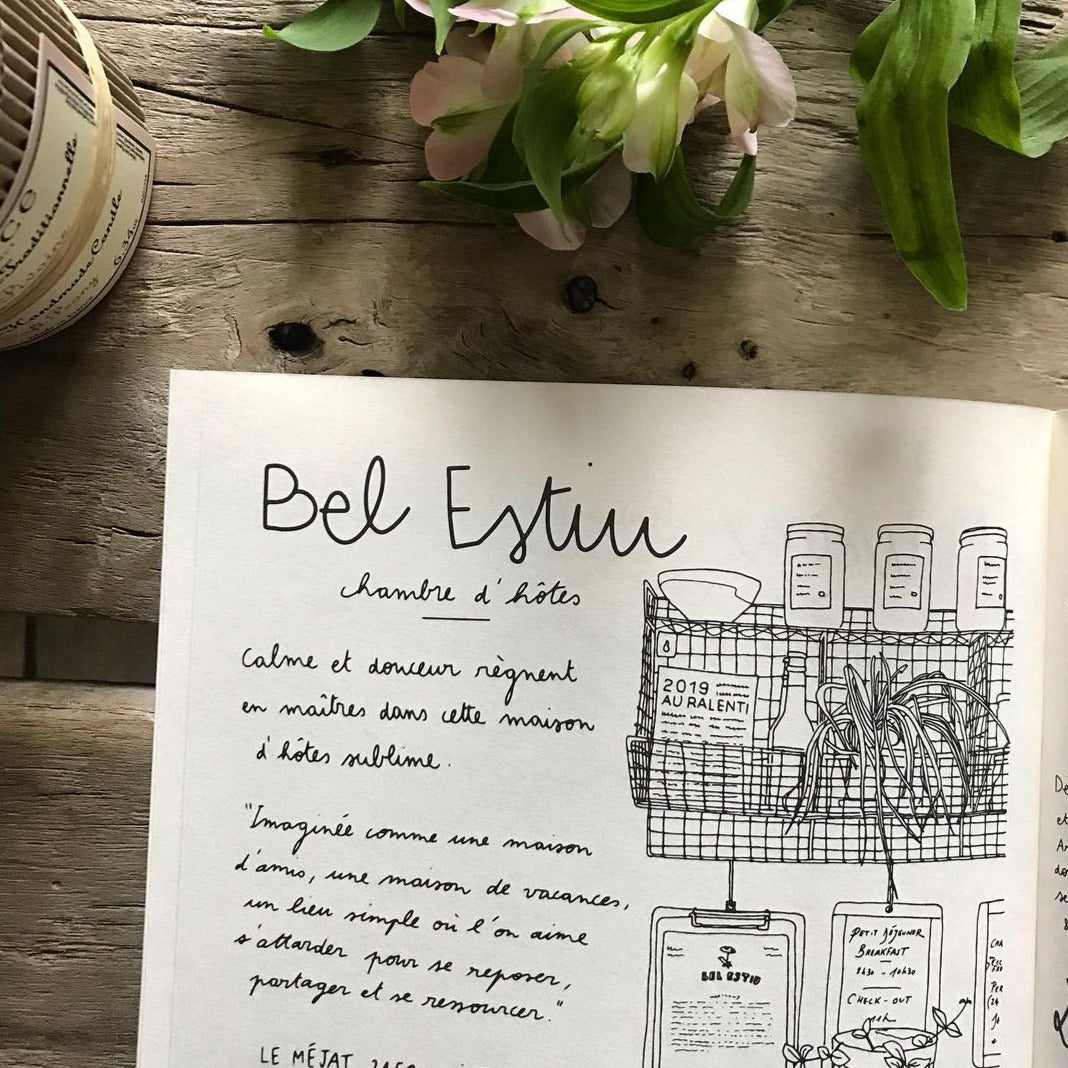 Traditionnelle
Handmade Candle
Bel Estiu
chambre d'hôtes
Calme et douceur règnent
en maîtres dans cette maison
d'hôtes sublime.
"Imaginée comme une maison
d'amis, une maison de vacances,
un lieu simple où l'on aime
s'attarder pour se reposer,
partager et se ressourcer."
LE MÉJAT
8
2019
AU RALENTI
BEL ESTIU
PETIT DÉJEUNER
BREAKFAST
8h30 - 10h30
CHECK-OUT
11h